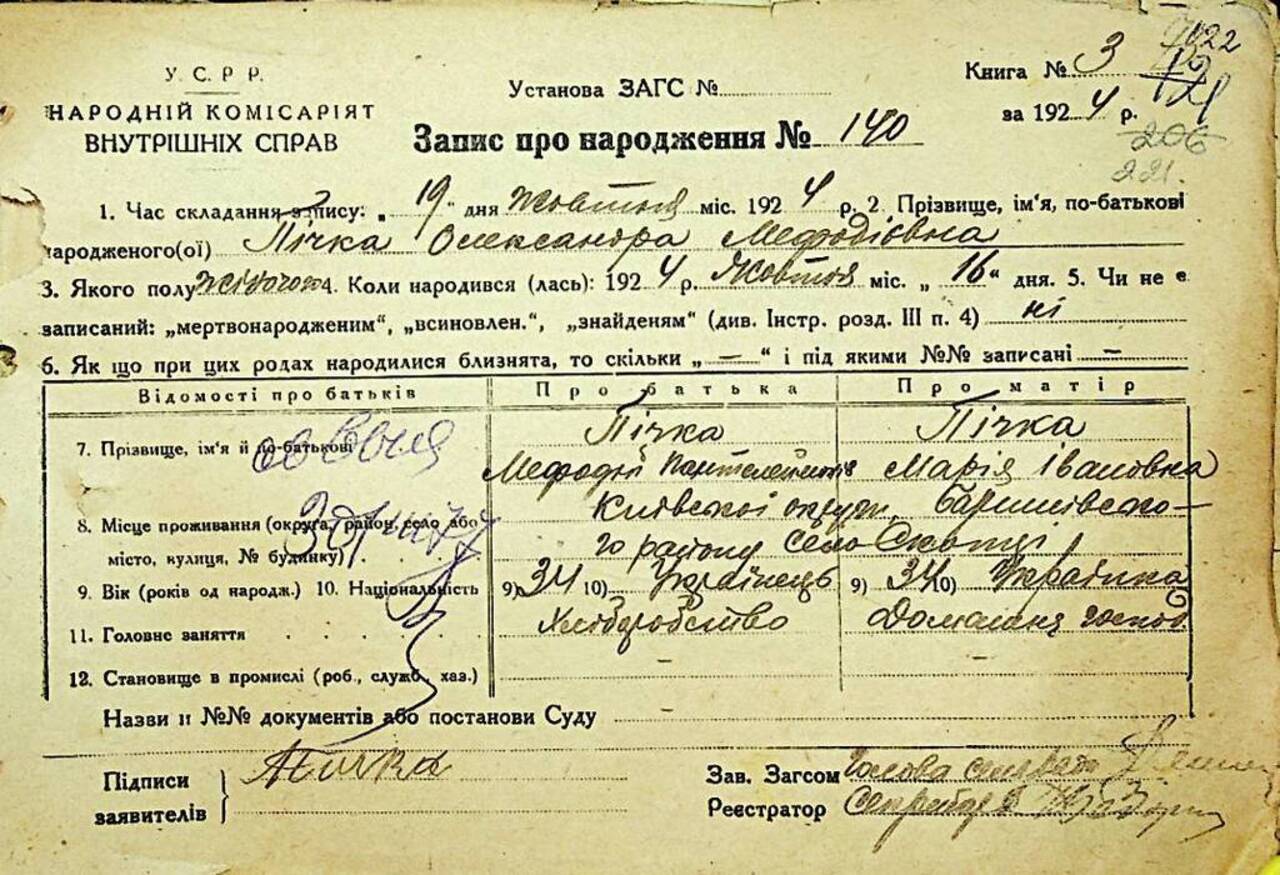 У. С. Р. Р.
НАРОДНІЙ КОМІСАРІЯТ
ВНУТРІШНІХ СПРАВ
Установа ЗАГС №
Запис про народження № 140
Книга № 3
за 1924 р.
206
221.
1. Час складання запису: „19" дня Жовтня міс. 1924 р. 2. Прізвище, ім'я, по-батькові
народженого(ої) Пічка Олександра Мефодіовна
3. Якого полу жіночого 4. Коли народився (лась): 1924 р. Жовтня міс. „16" дня. 5. Чи не є
записаний: „мертвонародженим", „всиновлен.", „знайденям" (див. Інстр. розд. III п. 4) ні
6. Як що при цих родах народилися близнята, то скільки „—" і під якими №№ записані —
Відомості про батьків Про батька Про матір
7. Прізвище, ім'я й по-батькові Пічка Пічка
Мефодій Марія Івановна
8. Місце проживання (округа, район, село або Київської округи, Баришівсько-
місто, вулиця, № будинку) го району село Скопці
9. Вік (років од народж.) 10. Національність 9) 34 10) Українець 9) 34 10) Українка
11. Головне заняття Хліборобство Домашня госпо
12. Становище в промислі (роб., служб., хаз.) – –
Назви и №№ документів або постанови Суду –
Підписи
заявителів Пичка
Зав. Загсом Голова
Реєстратор Секретар